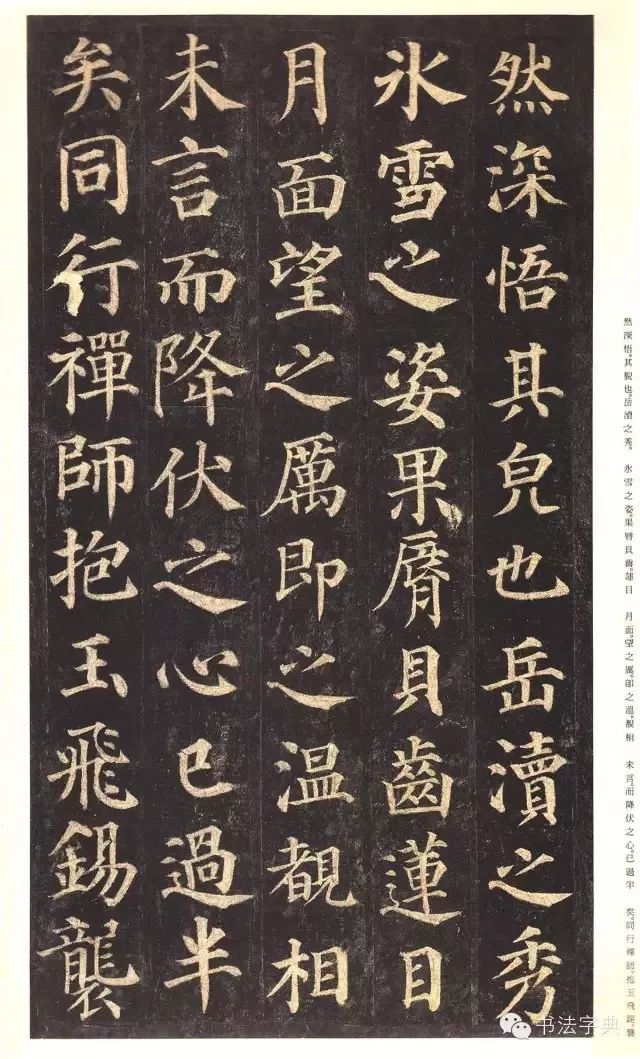 然深悟其皃也岳瀆之秀
氷雪之姿果脣貝齒蓮目
月面望之厲即之温覩相
未言而降伏之心已過半
矣同行禪師抱玉飛錫襲
然深悟。其貌也。岳瀆之秀。 氷雪之姿。果脣貝齒。蓮目 月面。望之厲。卽之溫。覩相 未言。而降伏之心。已過半 矣。同行禪師。抱玉飛錫。襲
书法字典